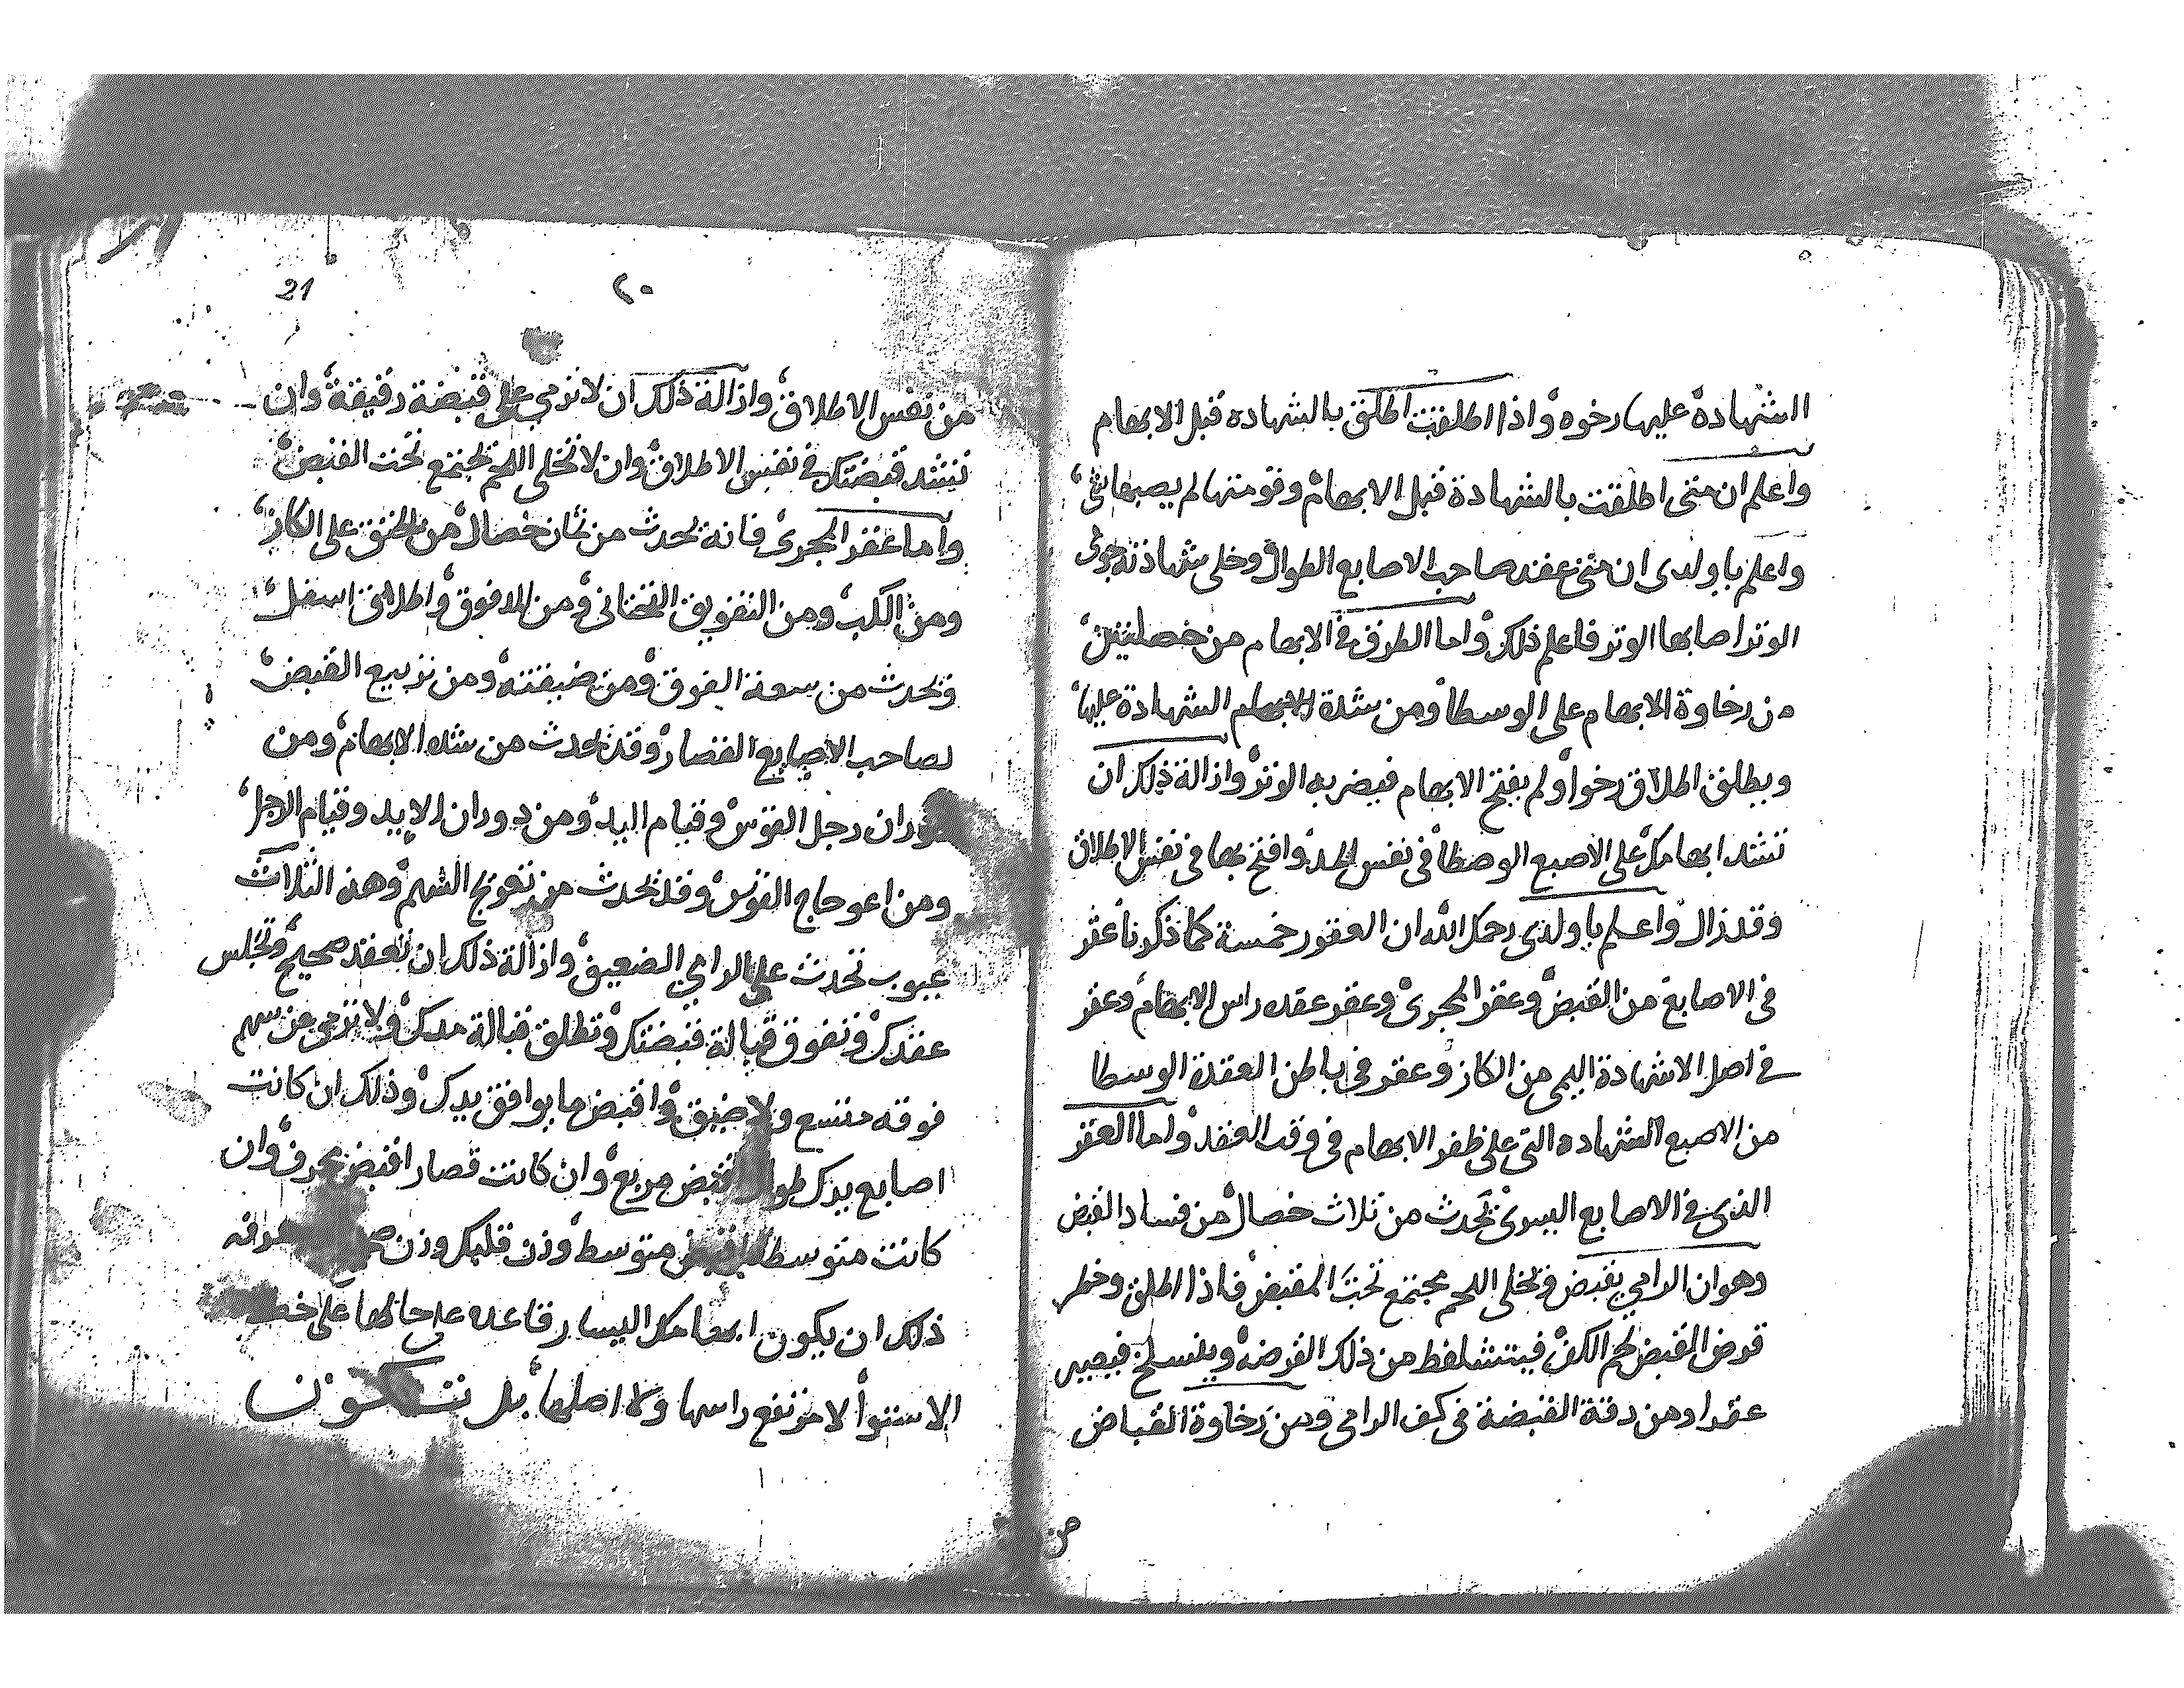 الشهادة عليها رخوه واذا اطلقت اطلق بالشهاده قبل الابهام
واعلم ان متى اطلقت بالشهادة قبل الابهام وقومتها لم يصبها شى
واعلم يا ولدى ان متى عقد صاحب الاصابع الطوال وخلى شهادته جوى
الوتر اصابها الوتر فاعلم ذلك واما الطرق في الابهام من خصلتين
من رخاوة الابهام على الوسطا ومن شدة الابهام الشهادة عليها
ويطلق اطلاق رخوا ولم يفتح الابهام فيضربه الوتر وازالة ذلك ان
تشد ابهامك على الاصبع الوصطا فى نفس المد وافتح بها فى نفس الاطلاق
وقد زال واعلم يا ولدى رحمك الله ان العقور خمسة كما ذكرنا عقر
فى الاصابع من القبض وعقر المجرى وعقر عقده راس الابهام وعقر
في اصل الاشهادة اليمى من الكاز وعقر فى باطن العقدة الوسطا
من الاصبع الشهاده التى على ظفر الابهام فى وقت العقد واما العقر
الذى في الاصابع اليسرى تحدث من ثلاث خصال من فساد القبض
وهو ان الرامي يقبض وتخلى اللحم مجتمع تحت المقبض فاذا اطلق وخطر
قرض المقبض لحم الكف فيتشلفط من ذلك القرضه وينسلخ فيصير
عقرا ومن دقة القبضة فى كف الرامى ومن رخاوة القباض
من
٢٠
21
من نفس الاطلاق وازالة ذلك ان لا ترمي على قبضة رقيقة وان
تشد قبضتك في نفس الاطلاق وان لا تخلى اللحم تجتمع تحت القبض
واما عقر المجرى فانه تحدث من ثمان خصال من الخنق على الكاز
ومن الكب ومن التفويق التحتانى ومن الفوق واطلاق اسفل
وتحدث من سعة الفوق ومن ضيقته ومن تربيع القبض
لصاحب الاصابع القصار وقد تحدث من شد الابهام ومن
دوران رجل القوس وقيام اليد ومن دوران الايد وقيام الاجل
ومن اعوجاج القوس وقد تحدث من تعويج السهم وهذه الثلاث
عيوب تحدث على الرامي الضعيف وازالة ذلك ان تعقد صحيح وتجلس
عقدك وتفوق قبالة قبضتك وتطلق قبالة مدك ولا ترمى عن سهم
فوقه متسع ولا ضيق واقبض ما يوافق يدك وذلك ان كانت
اصابع يدك طوال اقبض مربع وان كانت قصار اقبض محرف وان
كانت متوسطة اقبض متوسط وزن قلبك وزن
ذلك ان يكون ابهامك اليسار قاعده على حالها على خط
الاستوا لا مرتفع راسها ولا اصلها بل تتكون